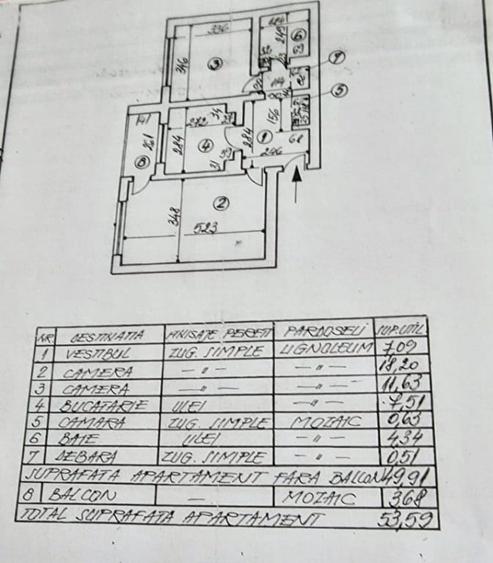 336
346
3
249
6
7
5
141
261
8
282
34
284
4
284
156
1
246
68
348
2
523
NR. DESTINATIA FINISAJE PERETI PARDOSELI SUP. UTIL
1 VESTIBUL ZUG. SIMPLE LIGNOLEUM 7,09
2 CAMERA — " — — " — 18,20
3 CAMERA — " — — " — 11,63
4 BUCATARIE ULEI — " — 7,51
5 CAMARA ZUG. SIMPLE MOZAIC 0,63
6 BAIE ULEI — " — 4,34
7 DEBARA ZUG. SIMPLE — " — 0,51
SUPRAFATA APARTAMENT FARA BALCON 49,91
8 BALCON — MOZAIC 3,68
TOTAL SUPRAFATA APARTAMENT 53,59